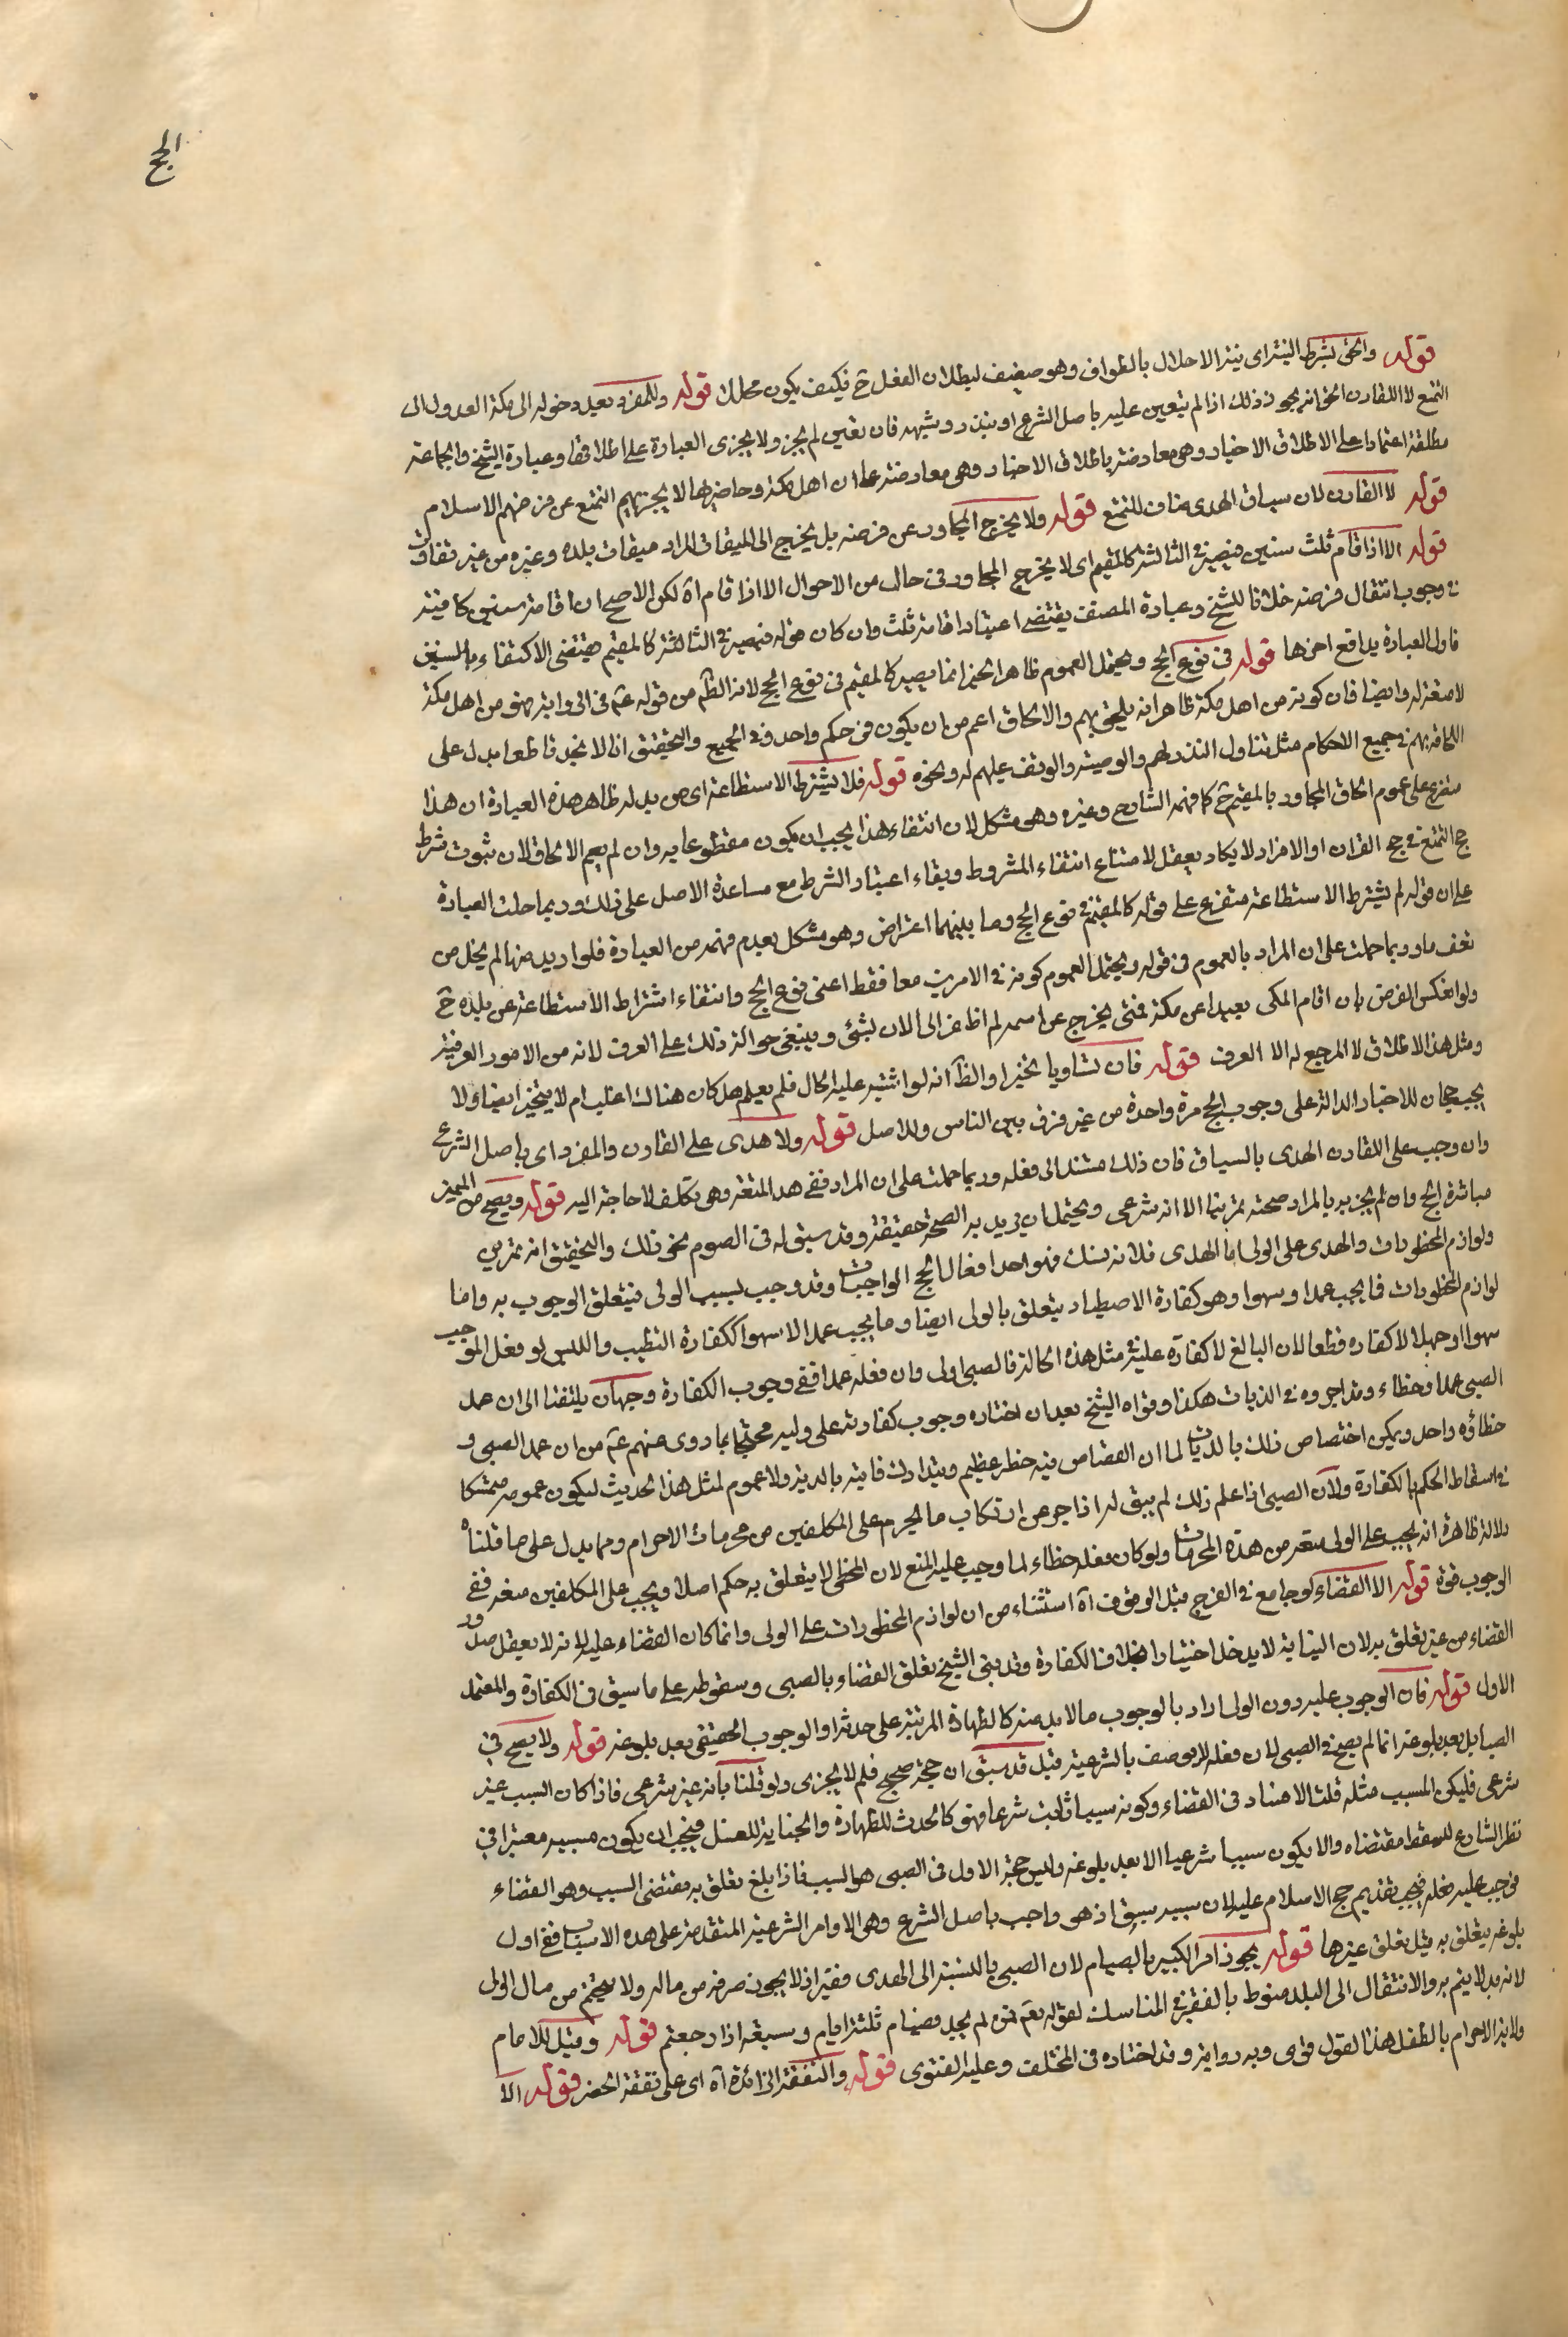 الحج
قوله والحق بشرط النية اى نية الاحلال بالطواف وهو ضعيف لبطلان الفعل ح فكيف يكون محللا قوله وللمفرد بعد دخوله الى مكة العدول الى
التمتع لا القارن الحق انه يجوز ذلك اذا لم يتعين عليه باصل الشرع او بنذر وشبهه فان تعين لم يجز ولا يجزى العبارة على اطلاقها وعبارة الشيخ والجماعة
مطلقة اعتمادا على الاطلاق الاخبار وهى معارضة باطلاق الاخبار وهى معارضة على ان اهل مكة وحاضريها لا يجزيهم التمتع عن فرضهم الاسلام
قوله لا القارن لان سياق الهدى مناف للتمتع قوله ولا يخرج المجاور عن فرضه بل يخرج الى الميقات المراد ميقات بلده وغيره من غير تفاوت
قوله الا اذا اقام ثلث سنين فيصير فى الثالثة كالمقيم اى لا يخرج المجاور فى حال من الاحوال الا اذا اقام آه لكن الاصح ان اقامة سنتين كافية
فى وجوب انتقال فرضه خلافا للشيخ وعبارة المصنف يقتضى اعتبار اقامة ثلث وان كان قوله فيصير فى الثالثة كالمقيم يقتضى الاكتفاء بالسنتين
فاول العبارة يدافع اخرها قوله فى نوع الحج ويحتمل العموم ظاهر الخبر انما يصير كالمقيم فى نوع الحج لانه الظآ من قوله عم فى الرواية فهو من اهل مكة
لا متعة له وايضا فان كونه من اهل مكة ظاهر انه يلحق بهم والالحاق اعم من ان يكون فى حكم واحد وفى الجميع والتحقيق انا لا نجد قاطعا يدل على
الحاقه بهم فى جميع الاحكام مثل تناول النذر لهم والوصية والوقف عليهم له ونحوه قوله فلا يشترط الاستطاعة اى من بلده ظاهر هذه العبارة ان هذا
متفرع على عموم الحاق المجاور بالمقيم ح كما فهمه الشارح وغيره وهو مشكل لان انتفاء هذا يجب ان يكون مقطوعا به وان لم يعم الالحاق لان ثبوت شرط
حج التمتع فى حج القران او الافراد لا يكاد يعقل لامتناع انتفاء المشروط وبقاء اعتبار الشرط مع مساعدة الاصل على ذلك وربما حملت العبارة
على ان قوله لم يشترط الاستطاعة متفرع على قوله كالمقيم فى نوع الحج وما بينهما اعتراض وهو مشكل بعدم فهمه من العبارة فلو اريد منها لم يخل من
تعسف ما وربما حملت على ان المراد بالعموم فى قوله ويحتمل العموم كونه فى الامرين معا فقط اعنى نوع الحج وانتفاء اشتراط الاستطاعة عن بلده ح
ولو انعكس الفرض بان اقام المكى بعيدا عن مكة فمتى يخرج عن اسمه لم اظفر الى الان بشئ وينبغى حوالة ذلك على العرف لانه من الامور العرفية
ومثل هذا الاطلاق لا المرجع له الا العرف قوله فان تساويا تخير او الظآ انه لو اشتبه عليه الحال فلم يعلم هل كان هناك اغلب ام لا يتخير ايضا ولا
يجب حجان للاخبار الدالة على وجوب الحج مرة واحدة من غير فرق بين الناس وللاصل قوله ولا هدى على القارن والمفرد اى باصل الشرع
وان وجب على القارن الهدى بالسياق فان ذلك مستند الى فعله وربما حملت على ان المراد فقى هدا المتعة وهو تكلف لا حاجة اليه قوله ويصح من المميز
مباشرة الحج وان لم يجز به بالمراد صحته تمرينا الا انه شرعى ويحتمل ان يريد به الصحة حقيقة وقد سبق له فى الصوم نحو ذلك والتحقيق انه تمرين
ولوازم المحظورات والهدى على الولى اما الهدى فلانه نسك فهو احد افعال الحج الواجبات وقد وجب بسبب الولى فيتعلق الوجوب به واما
لوازم المحظورات فما يجب عمدا وسهوا وهو كفارة الاصطياد يتعلق بالولى ايضا وما يجب عمدا لا سهوا ككفارة التطيب واللبس لو فعل الموجب
سهوا او جهلا لا كفاره قطعا لان البالغ لا كفارة عليه فى مثل هذه الحالة فالصبى اولى وان فعله عمدا ففى وجوب الكفارة وجهان يلتفتا الى ان عمد
الصبى عمد او خطاء وقد اجروه فى الديات هكذا وقواه الشيخ بعد ان اختار وجوب كفارته على وليه محتجا بما روى عنهم عم من ان عمد الصبى و
خطاؤه واحد ويمكن اختصاص ذلك بالديات لما ان القصاص فيه خطر عظيم وتدارك فايته بالدية ولا عموم لمثل هذا الحديث ليكون عمومه متمسكا
فى اسقاط الحكم بالكفارة ولان الصبى اذا علم ذلك لم يبق له زاجر عن ارتكاب ما يحرم على المكلفين من محرمات الاحرام ومما يدل على ما قلناه
دلالة ظاهرة انه يجب على الولى منعه من هذه المحرمات ولو كان فعله خطاء لما وجب عليه المنع لان الخطى لا يتعلق به حكم اصلا ويجب على المكلفين منعه ففى
الوجوب قوة قوله الا القضاء لو جامع فى الفرج قبل الوقوف آه استثناء من ان لوازم المحظورات على الولى وانما كان القضاء عليه لانه لا يعقل صدور
القضاء من غير تعلق به لان النيابة لا يدخل اختيارا بخلاف الكفارة وقد بنى الشيخ تعلق القضاء بالصبى وسقوطه على ما سبق فى الكفارة والمعتمد
الاول قوله فان الوجوب عليه دون الولى اراد بالوجوب ما لا بد منه كالطهارة المرتبة على حدثه او الوجوب الحقيقى بعد بلوغه قوله ولا يصح فى
الصبا بل بعد بلوغه انما لم يصح فى الصبى لان فعله لا يوصف بالشرعية قيل قد سبق ان حجه صحيح فلم لا يجزى ولو قلنا بانه غير شرعى فاذا كان السبب غير
شرعى فليكن المسبب مثله قلت الافساد فى القضاء وكونه سببا ثابت شرعا فهو كالحدث للطهارة والجنابة للغسل فيجب ان يكون مسببه معتبرا فى
نظر الشارع للسقط مقتضاه والا يكون سببا شرعيا الا بعد بلوغه وليس حجه الاول فى الصبى هو السبب فاذا بلغ تعلق به مقتضى السبب وهو القضاء
فوجب عليه فعله فيجب تقديم حج الاسلام عليه لان سببه سبق اذ هو واجب باصل الشرع وهو الاوامر الشرعية المتقدمة على هذه الاسباب ففى اول
بلوغه يتعلق به مثل تعلق غيرها قوله يجوز امر الكبير بالصيام لان الصبى بالنسبة الى الهدى فقير اذ لا يجوز صرفه من ماله ولا يتحتم من مال الولى
لانه بدلا يتم به والانتقال الى البدل منوط بالفقر فى المناسك لقوله تعم فمن لم يجد فصيام ثلثة ايام وسبعة اذا رجعتم قوله وقيل للامام
ولاية الاحرام بالطفل هذا القول قوى وبه رواية وقد اختاره فى المختلف وعليه الفتوى قوله والنفقة الزائدة آه اى على نفقة الحضر قوله الا